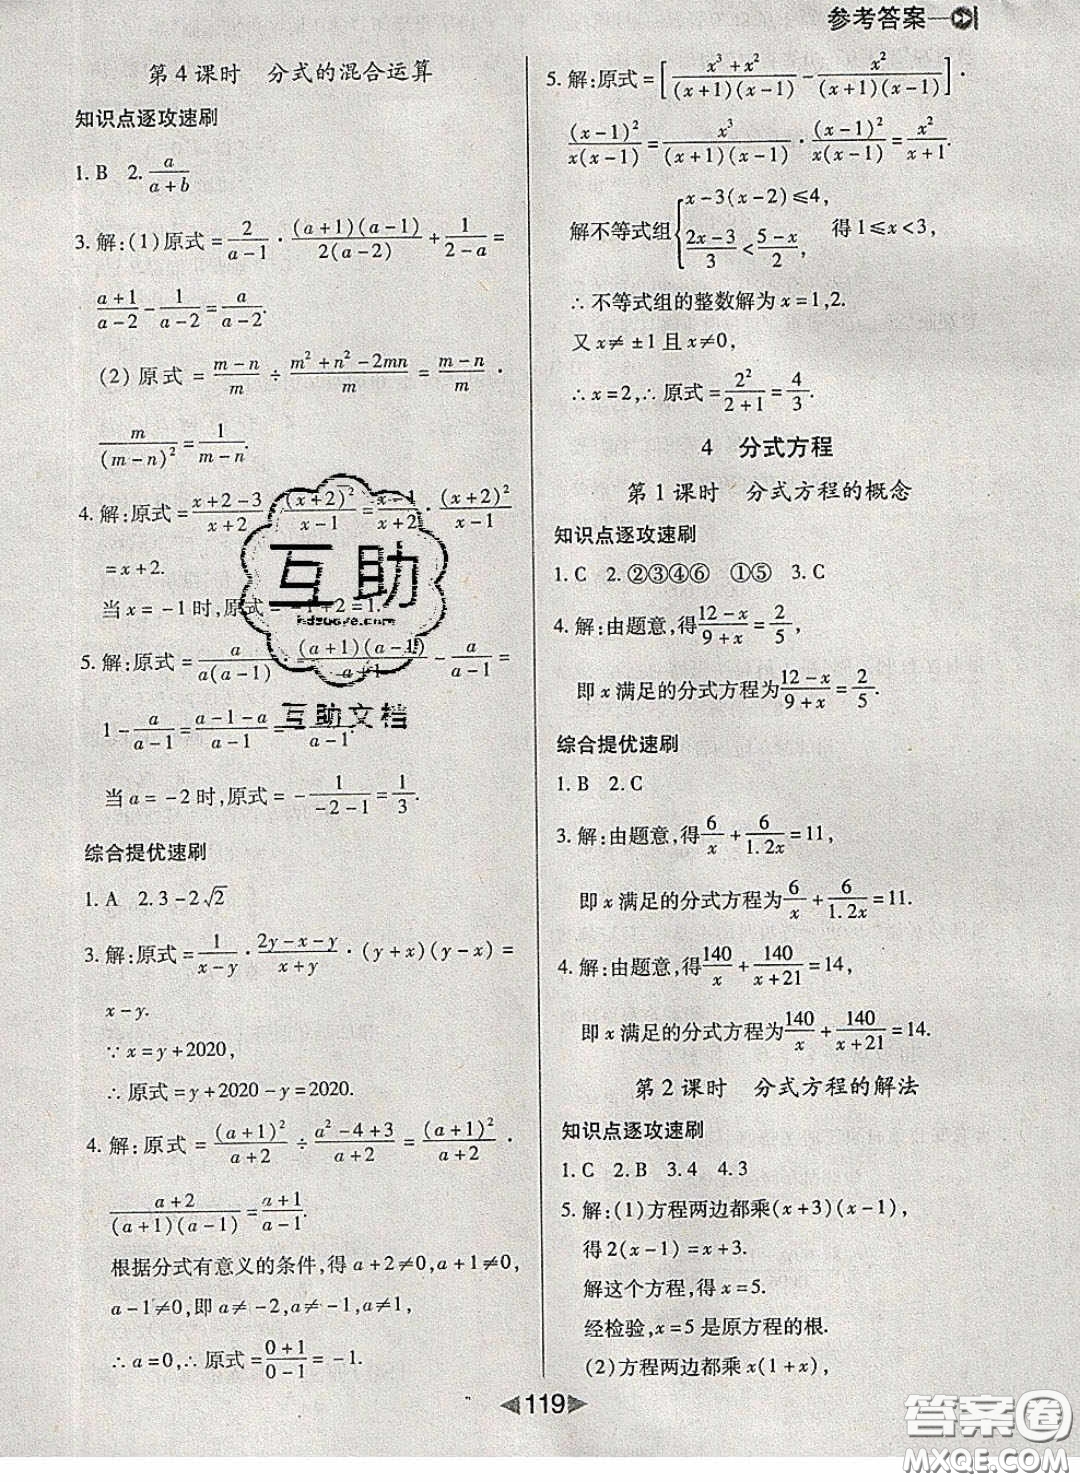 参考答案
第4课时 分式的混合运算
知识点逐攻速刷
1. B 2. a/(a+b)
3. 解:(1)原式 = 2/(a-1) · (a+1)(a-1)/2(a-2) + 1/(2-a) =
(a+1)/(a-2) - 1/(a-2) = a/(a-2).
(2)原式 = (m-n)/m ÷ (m²+n²-2mn)/m = (m-n)/m ·
m/(m-n)² = 1/(m-n).
4. 解:原式 = (x+2-3)/(x+2) · (x+2)²/(x-1) = (x-1)/(x+2) · (x+2)²/(x-1)
= x+2.
当 x = -1 时,原式 = -1+2=1.
5. 解:原式 = a/a(a-1) · (a+1)(a-1)/(a+1) - a/(a-1) =
1 - a/(a-1) = (a-1-a)/(a-1) = /(a-1).
当 a = -2 时,原式 = - 1/(-2-1) = 1/3.
综合提优速刷
1. A 2. 3-2√2
3. 解:原式 = 1/(x-y) · (2y-x-y)/(x+y) · (y+x)(y-x) =
x-y.
∵ x=y+2020,
∴ 原式 = y+2020-y=2020.
4. 解:原式 = (a+1)²/(a+2) ÷ (a²-4+3)/(a+2) = (a+1)²/(a+2) ·
(a+2)/(a+1)(a-1) = (a+1)/(a-1).
根据分式有意义的条件,得 a+2≠0,a+1≠0,
a-1≠0,即 a≠-2,a≠-1,a≠1,
∴ a=0,∴ 原式 = (0+1)/(0-1) = -1.
5. 解:原式 = [(x³+x²)/(x+1)(x-1) - x²/(x+1)(x-1)] ·
(x-1)²/x(x-1) = x³/(x+1)(x-1) · (x-1)²/x(x-1) = x²/(x+1).
解不等式组{x-3(x-2)≤4, (2x-3)/3<(5-x)/2, 得 1≤x<3,
∴ 不等式组的整数解为 x=1,2.
又 x≠±1 且 x≠0,
∴ x=2,∴ 原式 = 2²/(2+1) = 4/3.
4 分式方程
第1课时 分式方程的概念
知识点逐攻速刷
1. C 2. ②③④⑥ ①⑤ 3. C
4. 解:由题意,得(12-x)/(9+x) = 2/5,
即 x 满足的分式方程为(12-x)/(9+x) = 2/5.
综合提优速刷
1. B 2. C
3. 解:由题意,得6/x + 6/1.2x = 11,
即 x 满足的分式方程为6/x + 6/1.2x = 11.
4. 解:由题意,得140/x + 140/(x+21) = 14,
即 x 满足的分式方程为140/x + 140/(x+21) = 14.
第2课时 分式方程的解法
知识点逐攻速刷
1. C 2. B 3. 4 4. 3
5. 解:(1)方程两边都乘(x+3)(x-1),
得 2(x-1)=x+3.
解这个方程,得 x=5.
经检验,x=5 是原方程的根.
(2)方程两边都乘 x(1+x),
119
互助
hdzuoye.com
互助文档
答案圈
MXQE.COM